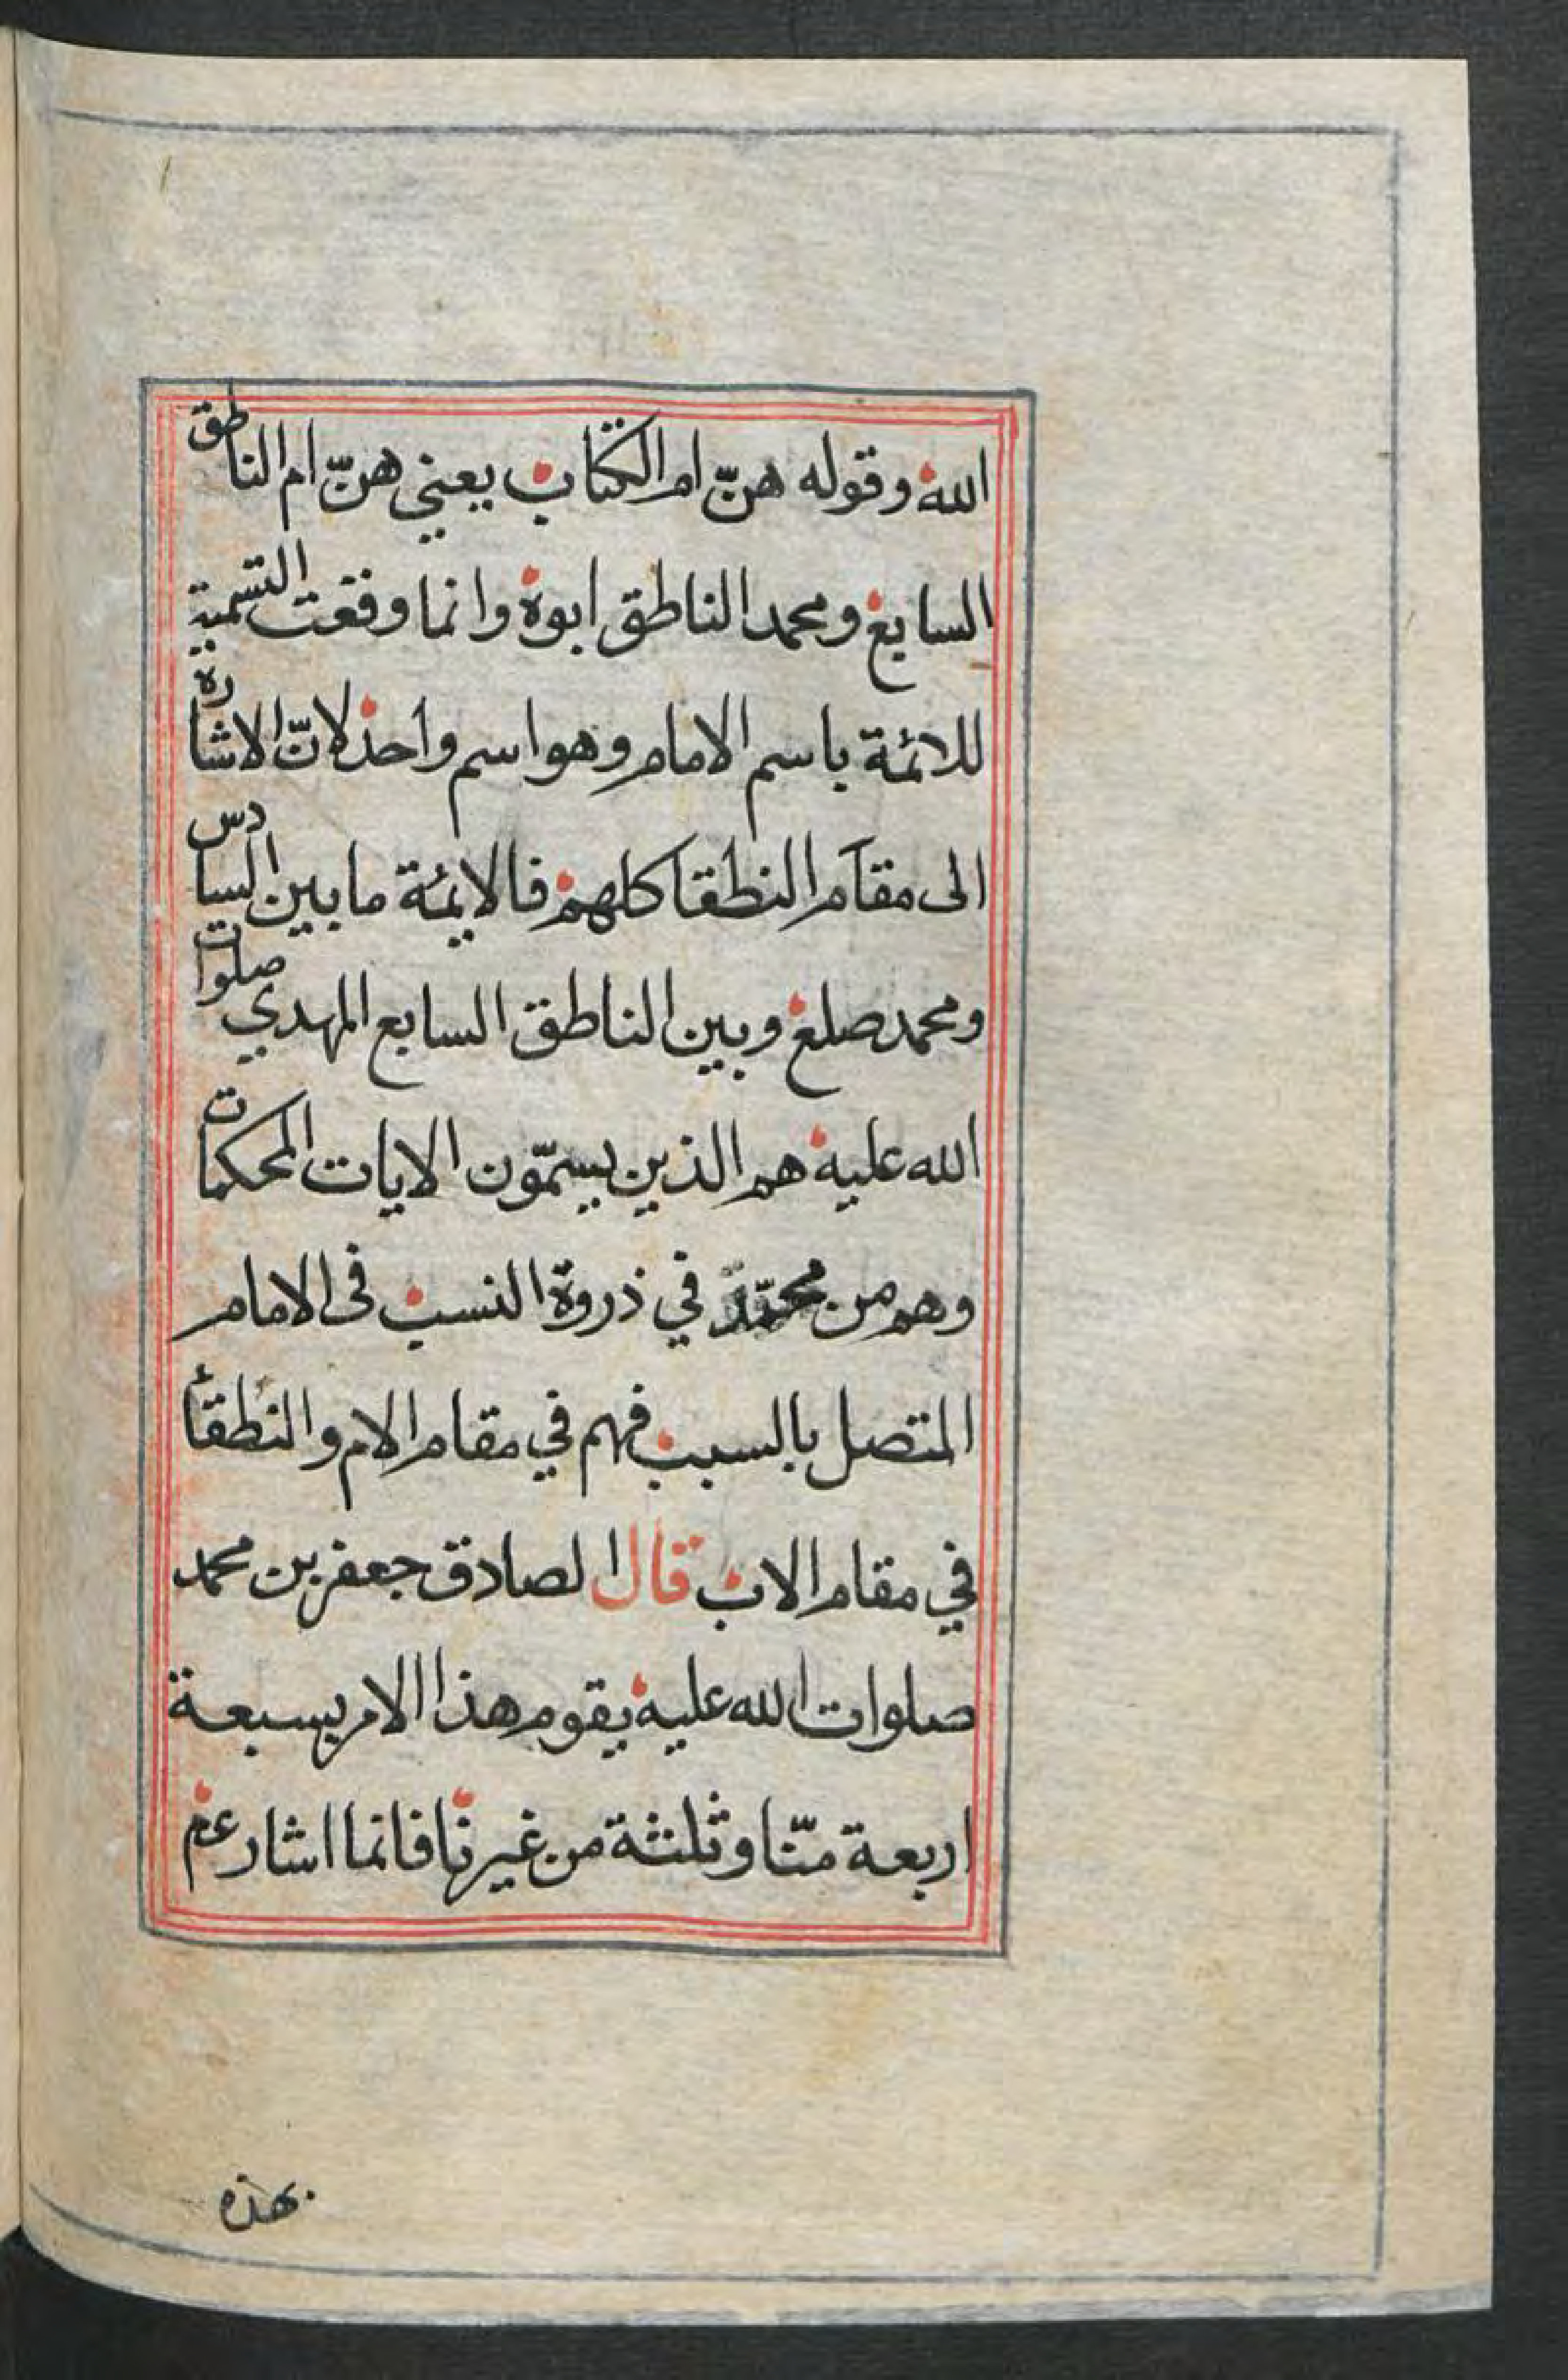 الله وقوله هنّ ام الكتاب يعني هنّ ام الناطق
السابع ومحمد الناطق ابوه وانما وقعت التسمية
للائمة باسم الامام وهو اسم واحد لانّ الاشارة
الى مقام النطقا كلهم فالايمة ما بين السادس
ومحمد صلع وبين الناطق السابع المهدي صلوات
الله عليه هم الذين يسمّون الايات المحكمات
وهم من محمّد في ذروة النسب فى الامام
المتصل بالسبب فهم في مقام الام والنطقأ
في مقام الاب قال الصادق جعفر بن محمد
صلوات الله عليه يقوم هذا الامر بسبعة
اربعة منّا وثلثة من غيرنا فانما اشار عم
بهذه